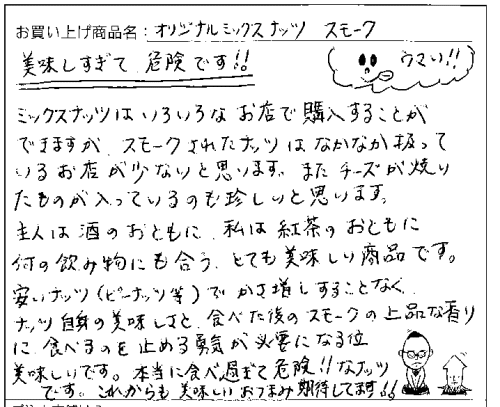 お買い上げ商品名：オリジナルミックスナッツ スモーク
美味しすぎて 危険です!!
ウマい!!
ミックスナッツは いろいろな お店で 購入することが
できますが、スモークされたナッツは なかなか 扱って
いるお店が少ないと思います。また チーズが焼い
たものが入っているのも珍しいと思います。
主人は酒のおともに、私は紅茶のおともに
何の飲み物にも合う、とても美味しい商品です。
安いナッツ（ピーナッツ等）で かさ増しすることなく、
ナッツ自身の美味しさと、食べた後のスモークの上品な香り
に、食べるのを止める勇気が必要になる位
美味しいです。本当に食べ過ぎて危険!!なナッツ
です。これからも美味しいおつまみ期待してます!!